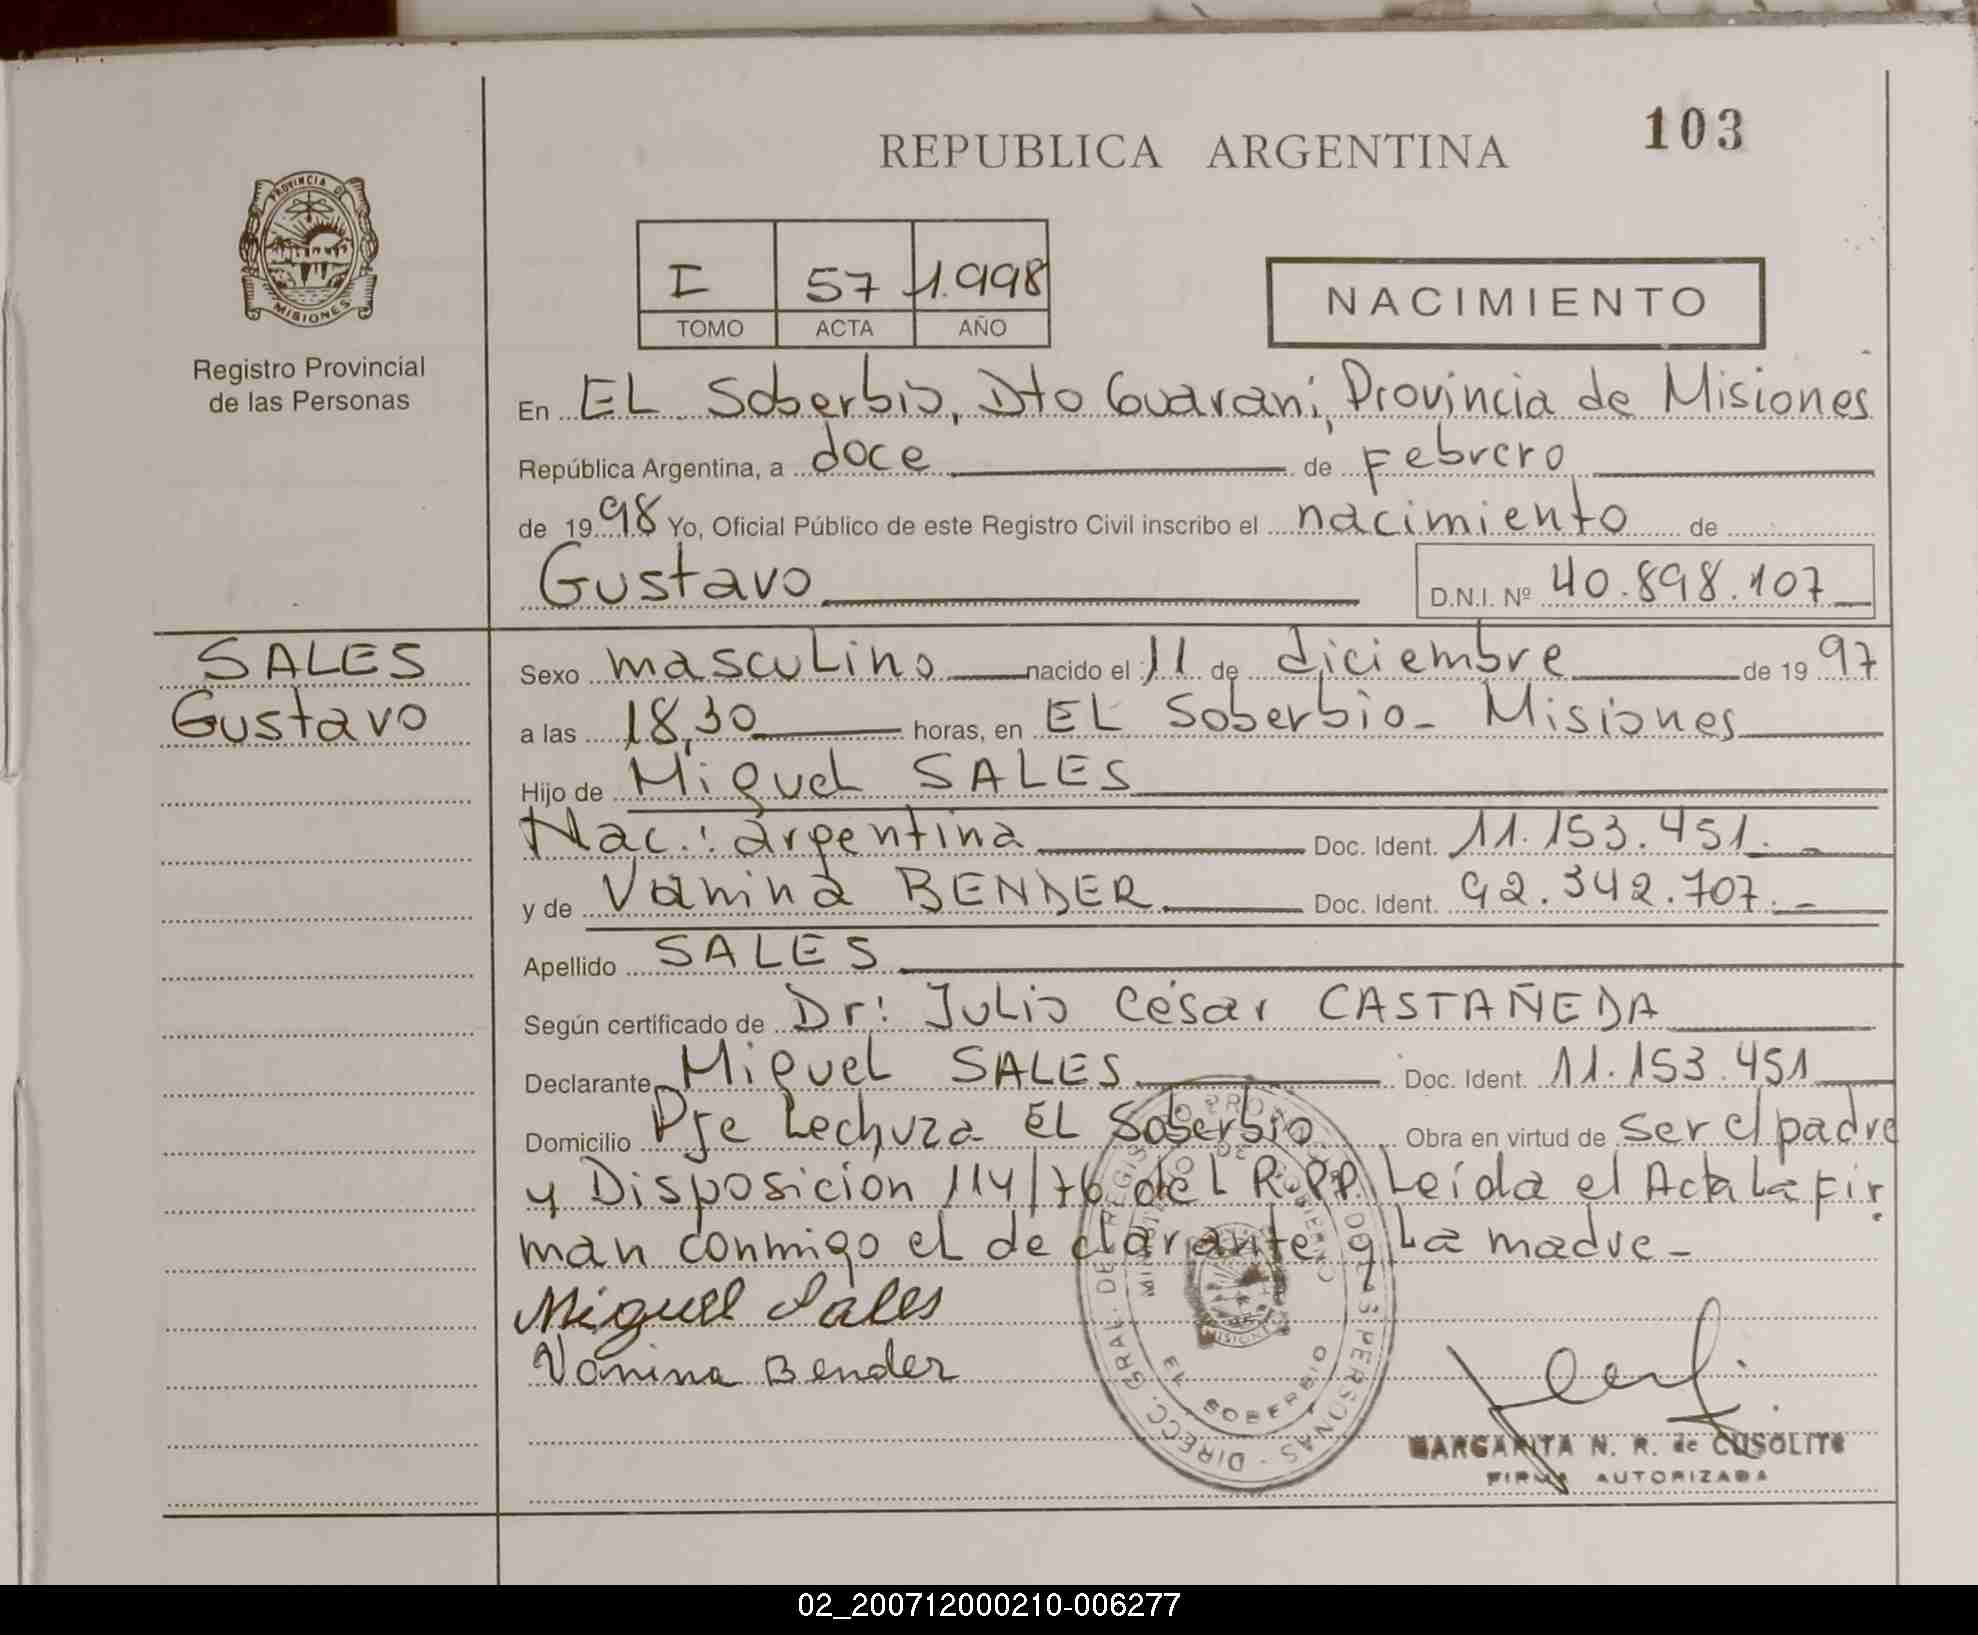 103
REPUBLICA ARGENTINA
PROVINCIA DE
MISIONES
Registro Provincial
de las Personas
I 57 1.998
TOMO ACTA AÑO
NACIMIENTO
En EL Soberbio, Dto Guaraní, Provincia de Misiones
República Argentina, a doce de Febrero
de 1998 Yo, Oficial Público de este Registro Civil inscribo el nacimiento de
Gustavo D.N.I. Nº 40.898.107
SALES
Gustavo
Sexo masculino nacido el 11 de diciembre de 1997
a las 18,30 horas, en EL Soberbio - Misiones
Hijo de Miguel SALES
Nac.: argentina Doc. Ident. 11.153.451.-
y de Vanina BENDER Doc. Ident. 92.342.707.-
Apellido SALES
Según certificado de Dr: Julio César CASTAÑEDA
Declarante Miguel SALES Doc. Ident. 11.153.451
Domicilio Pje Lechuza EL Soberbio Obra en virtud de ser el padre
y Disposición 114/76 del R.P.P. Leída el Acta la fir
man conmigo el declarante y La madre-
Miguel Sales
Vanina Bender
DIRECC. GRAL. DE REGISTRO PROV. DE LAS PERSONAS
MINISTERIO DE GOBIERNO
MISIONES
EL SOBERBIO
MARGARITA N. R. de CUSOLITO
FIRMA AUTORIZADA
02_200712000210-006277